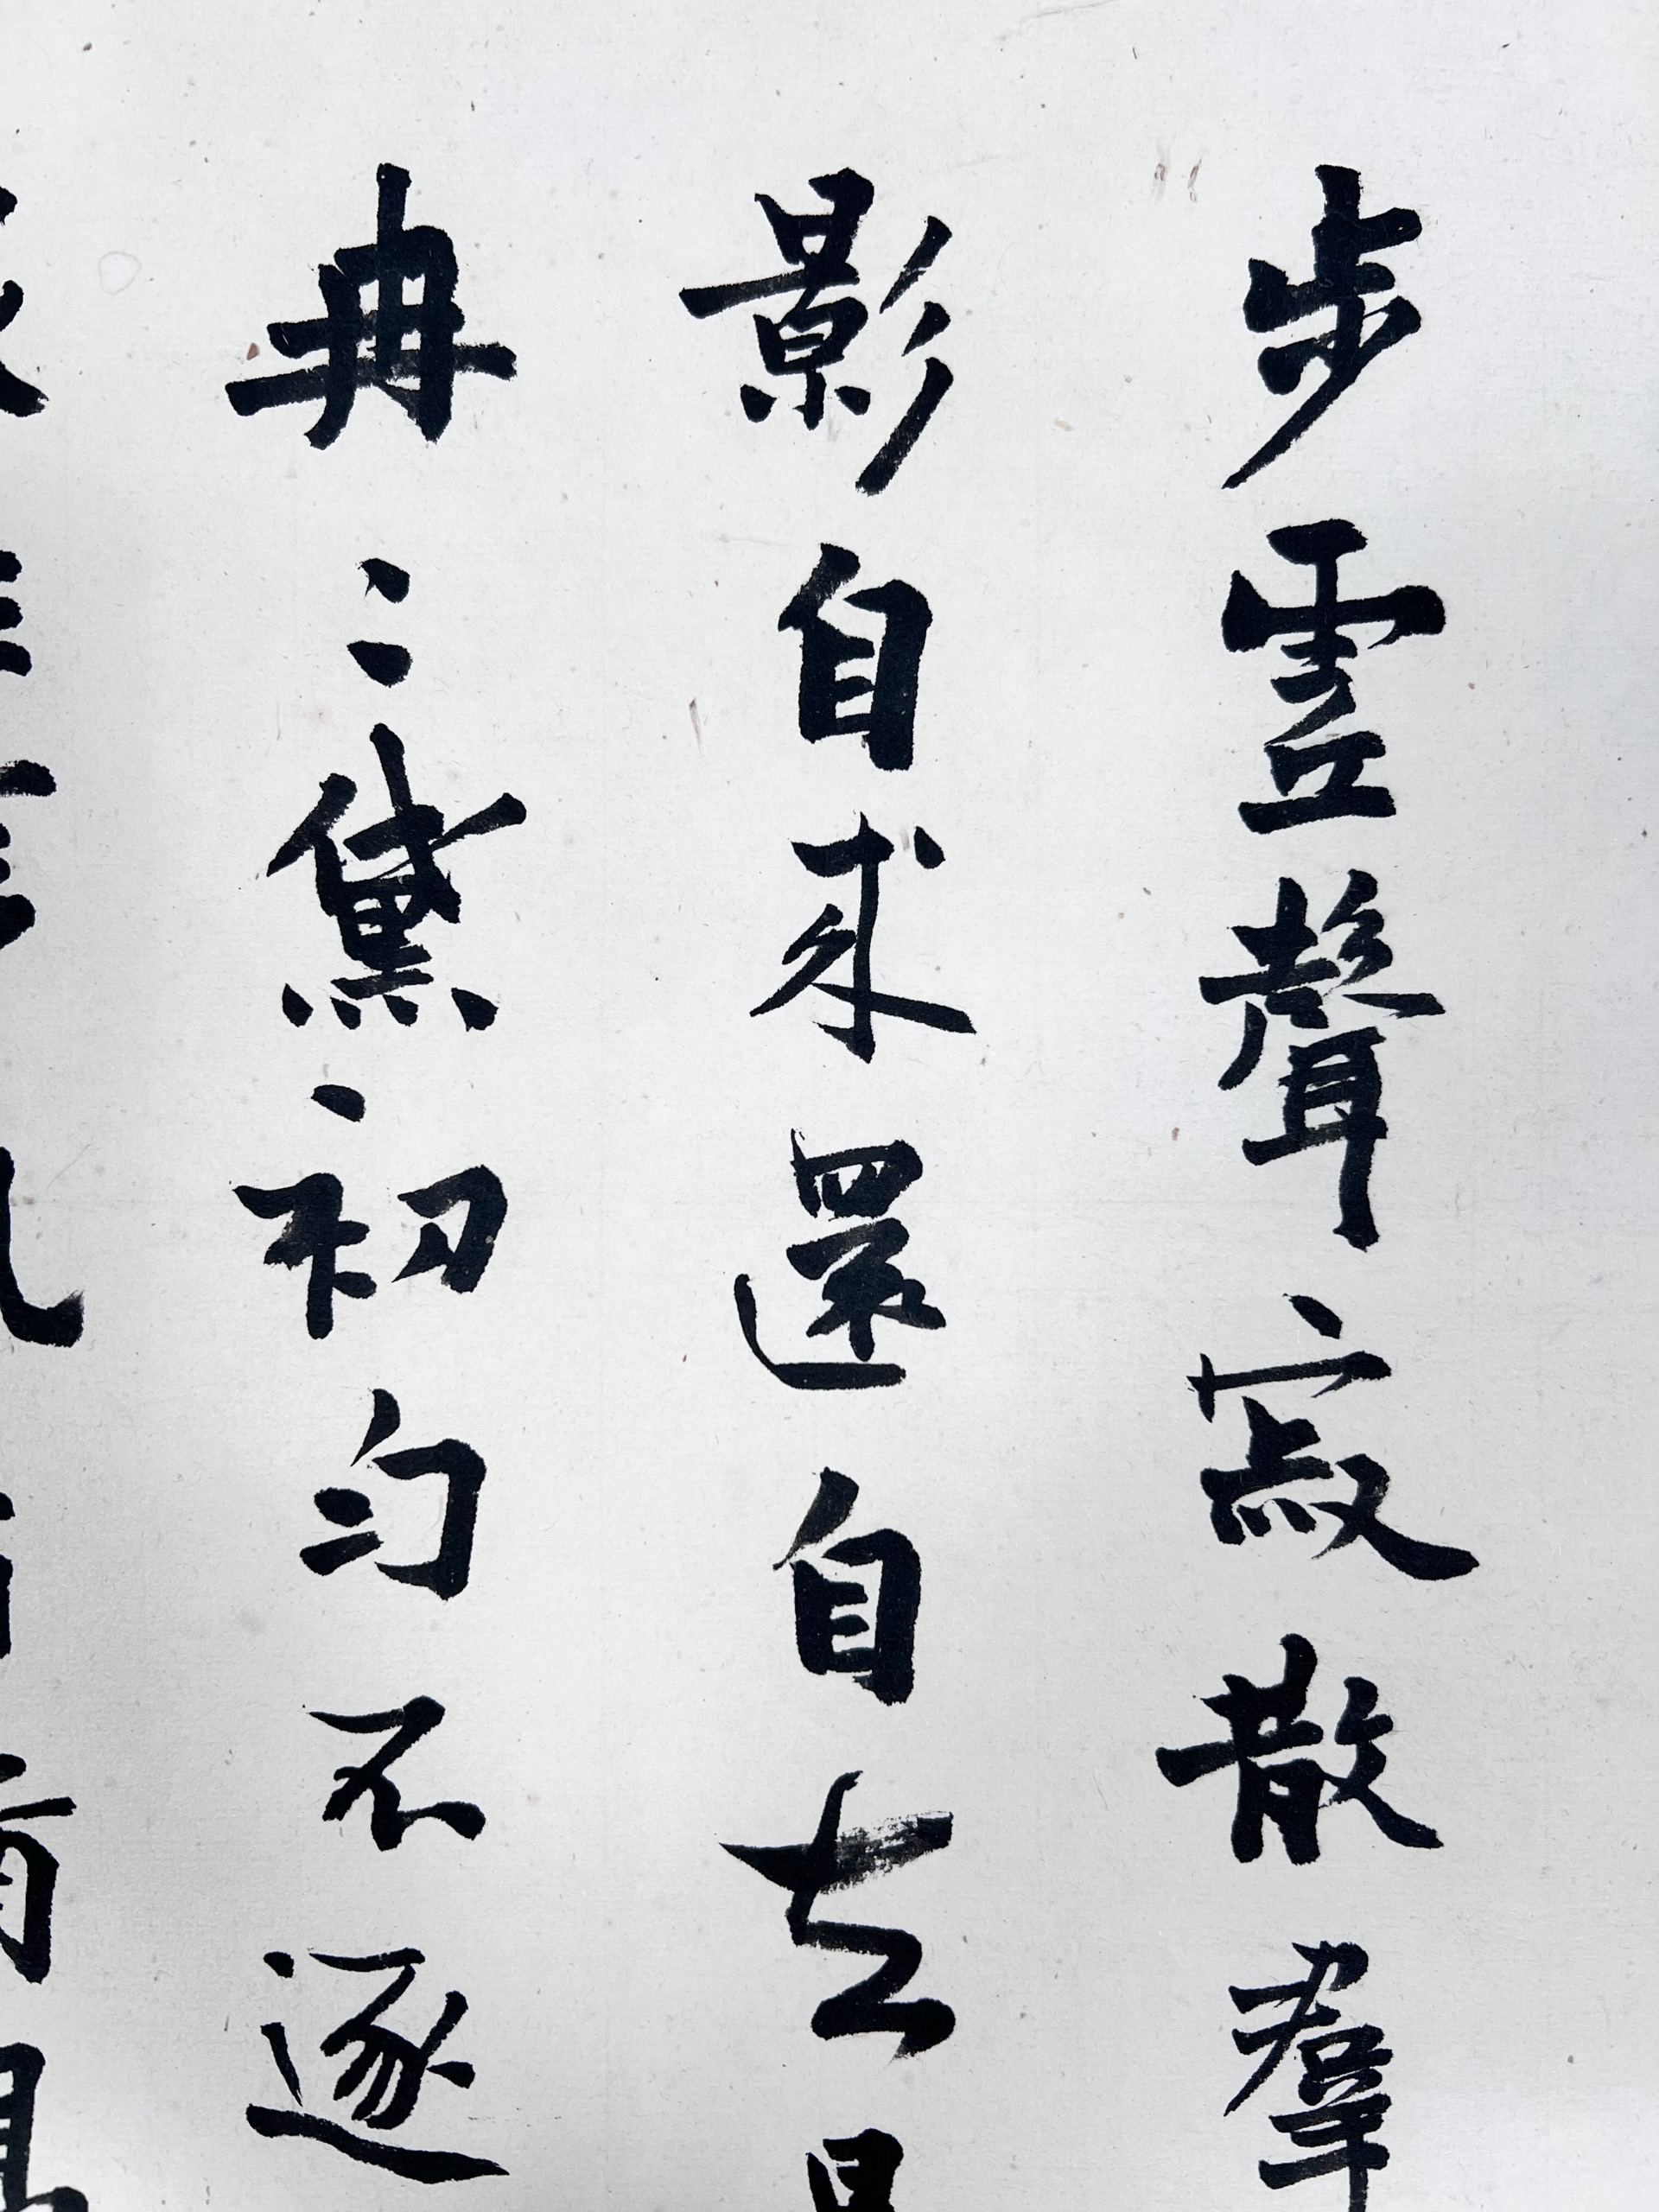 步虛聲寂散羣
影自來還自去
冉〻黛初勻不逐